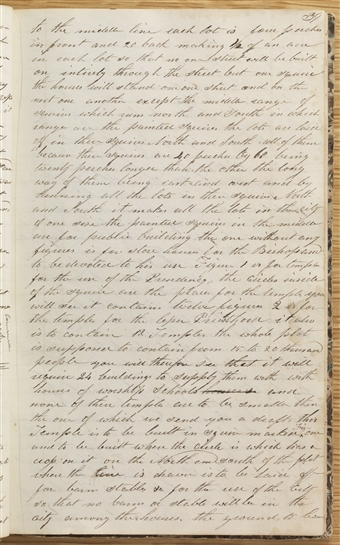 to the middle line each lot is four perches
in front and 20 back making ½ of an acre
in each lot so that no one street will be built
on intirely through the street but one square
the houses will stand on one street and on the
next one another except the middle range of
squares which runs north and South in which
range are the painted squares the lots are laid
of in these squares North and South all of them
because these squares are 40 perches by 60 being
twenty perches longer than the other the long
way of them being east and west and by
runing all the lots in these squares North
and South it makes all the lots in the city
of one size the painted squares in the middle
are for public building the one without any
figures is for store houses for the Bishop and
to be devoted to his use Figure 1 is for temples
for the use of the Presidency the circles inside
of the square are the places for the temples you
will see it contains twelve figures 2 is for
the temples for the lesser Priesthood it also
is to contain 12 Temples the whole plot
is supposed to contain from 15 to 20 thousand
people you will therefore see that it will
require 24 building to supply them with
houses of worship Schools and
none of these temples are to be smaller than
the one of which we send you a draft this
Temple is to be built in square marked figure one
and to be built where the circle is which has a
cross on it on the North and South of the plot
where the line is drawn is to be laid off
for barns stables &c for the use of the city
so that no barns or stables will be in the
city among the houses the ground to be